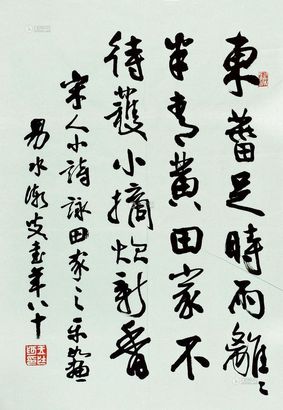 東菑足時雨離〻
半青黄田家不
待穫小摘炊新香
宋人小詩詠田家之乐
易水年八十